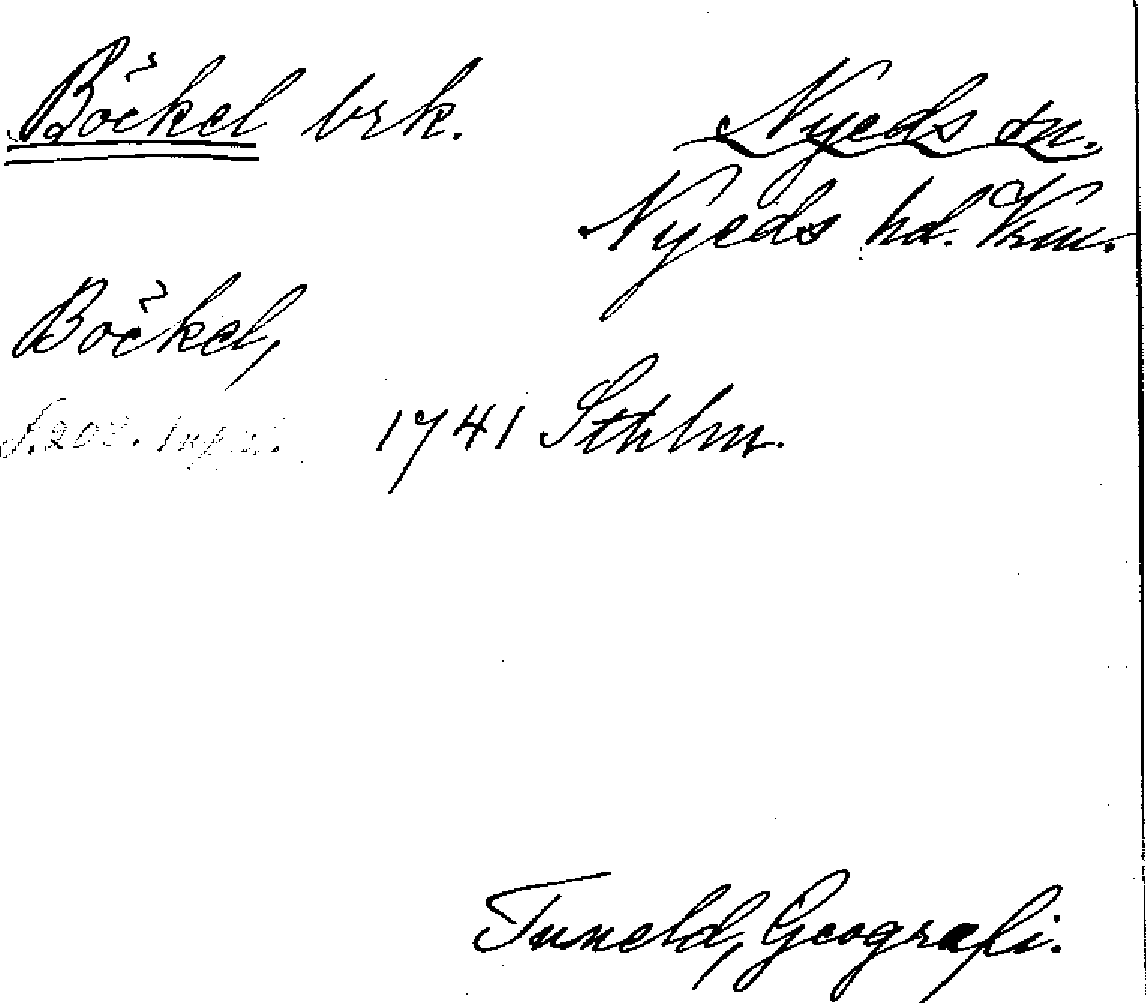 Böckel brk. Nyeds sn.
Nyeds hd. Vrm.
Böckel,
1741 Sthlm.
Tuneld, Geografi.